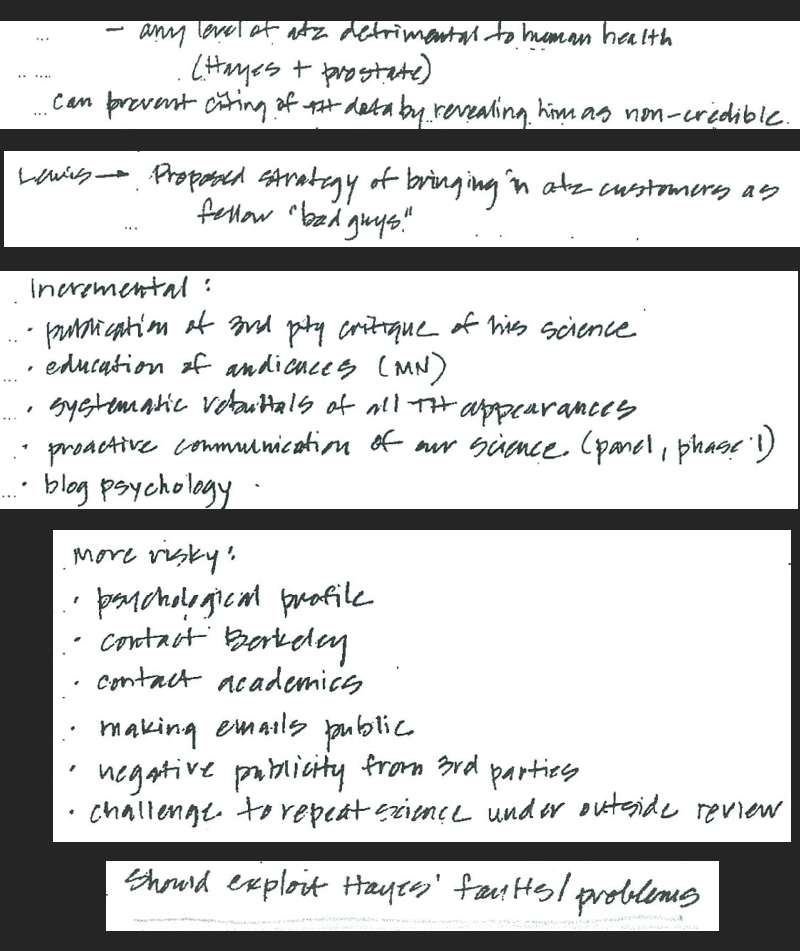 - any level of atz detrimental to human health
(Hayes + prostate)
can prevent citing of TH data by revealing him as non-credible.
Lewis → Proposed strategy of bringing in atz customers as
fellow "bad guys"
Incremental:
· publication of 3rd pty critique of his science
· education of audiences (MN)
· systematic rebuttals of all TH appearances
· proactive communication of our science. (panel, phase 1)
· blog psychology
More risky:
· psychological profile
· contact Berkeley
· contact academics
· making emails public
· negative publicity from 3rd parties
· challenge to repeat science under outside review
Should exploit Hayes' faults/problems